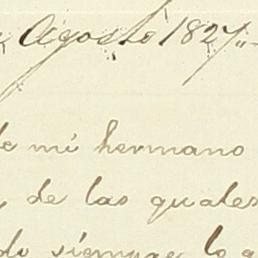 Agosto 1827„
de mi hermano
, de las quales
do siempre lo q